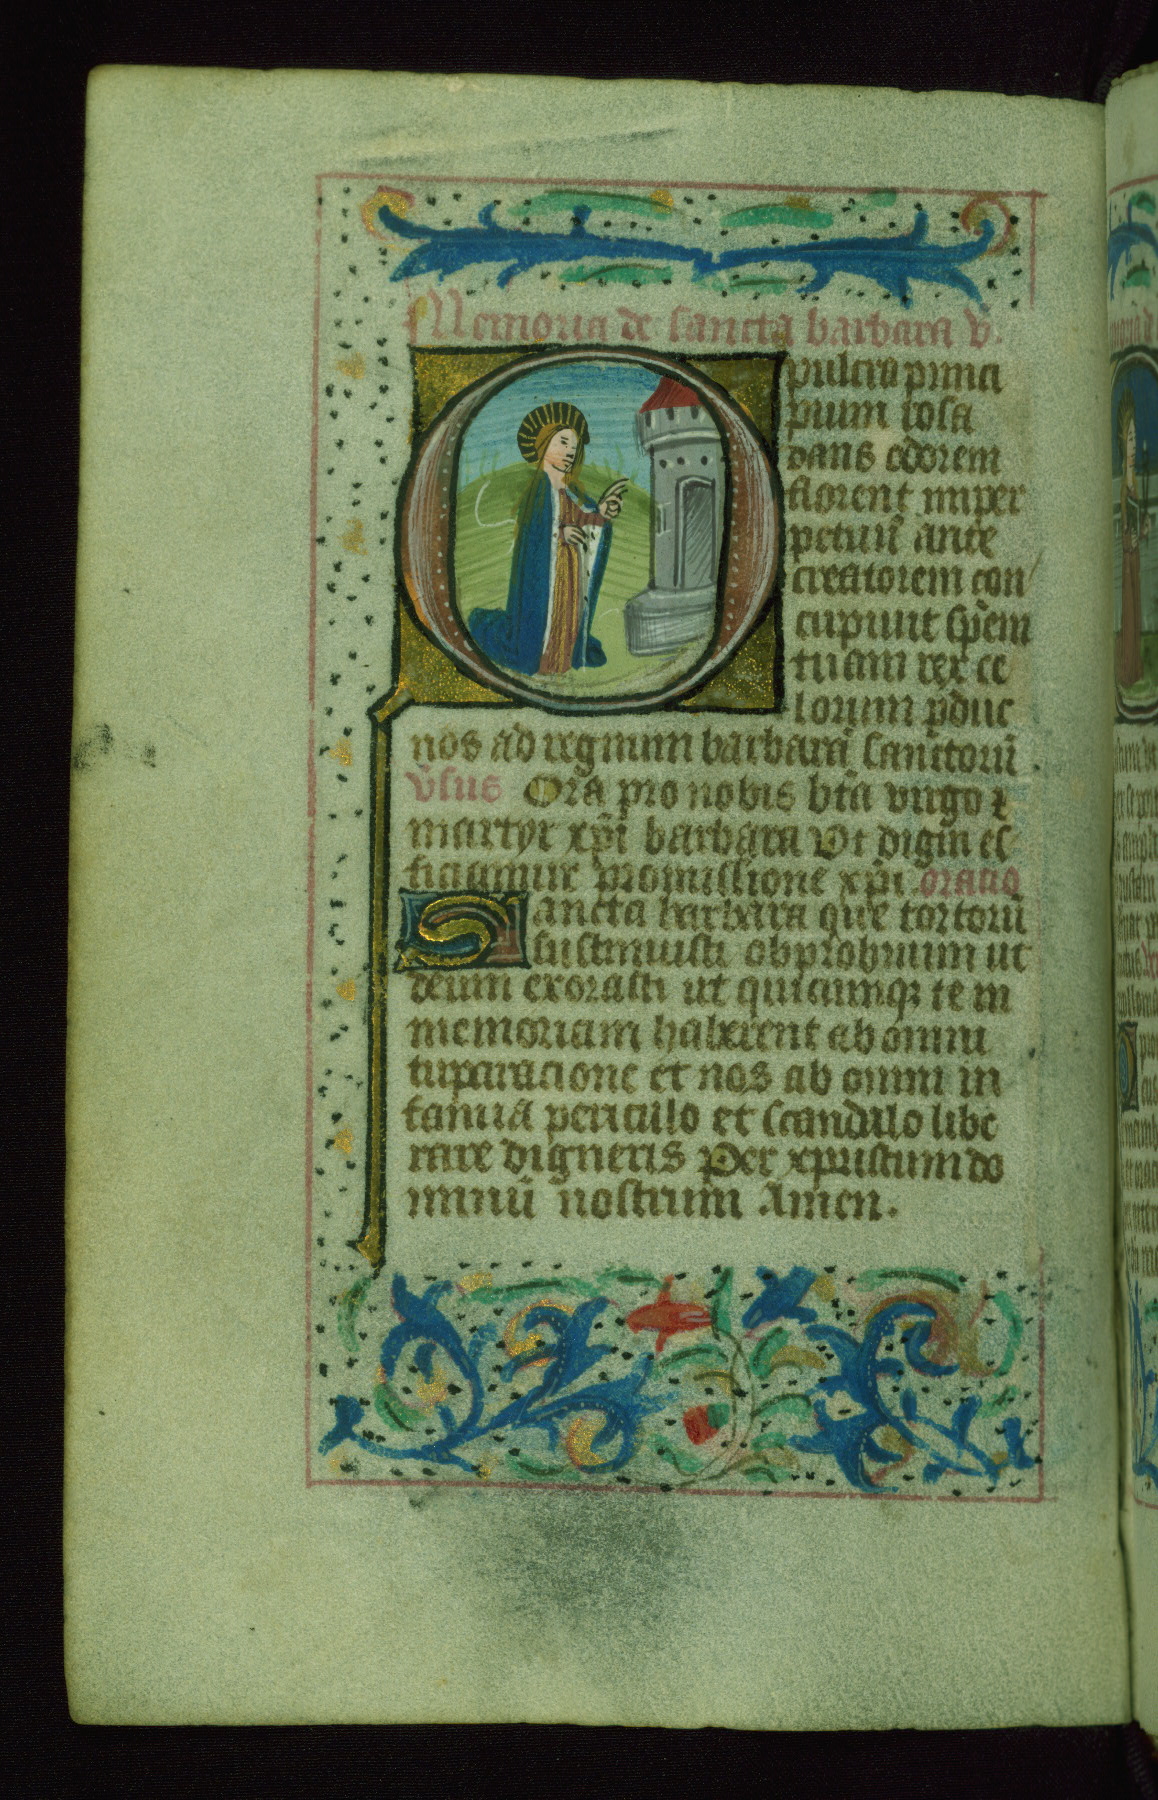 Memoria de sancta barbara v.
O pulcra princi
pium rosa
dans odorem
florent imper
petuū ante
creatorem con
cupiunt sp̄em
tuam rex ce
lorum p̄duc
nos ad regnum barbarā sanctorū
v̄sus Ora pro nobis bt̄a virgo ⁊
martyr xp̄i barbara Vt digni ef
ficiamur promissione xp̄i oracio
Sancta barbara que tortorū
sustinuisti obprobrium ut
deum exorasti ut quicumqꝫ te in
memoriam haberent ab omni
tuparacione et nos ab omni in
famia periculo et scandalo libe
rare digneris Per xpristum do
minū nostrum Amen.